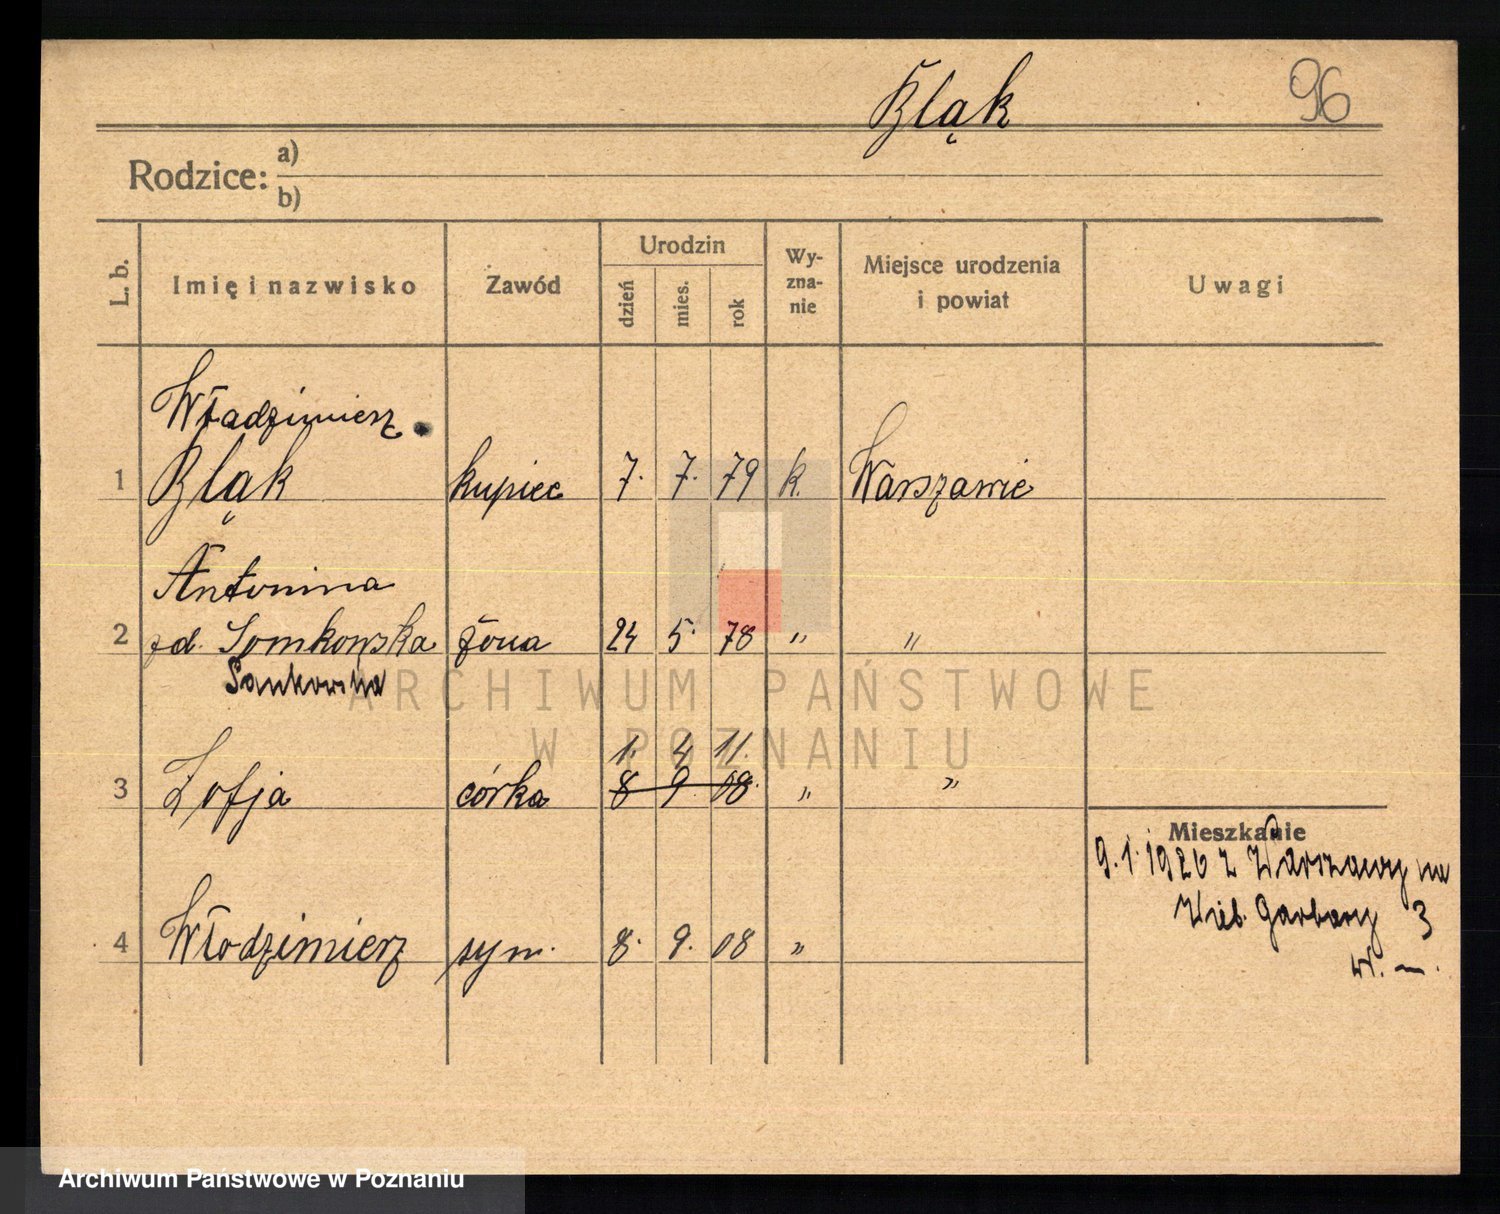 Bląk
96
Rodzice:
a)
b)
L. b.
Imię i nazwisko
Zawód
Urodzin
dzień
mies.
rok
Wy-
zna-
nie
Miejsce urodzenia
i powiat
Uwagi
Władzimierz
1 Bląk kupiec 7. 7. 79 k. Warszawie
Antonina
2 zd. Somkowska żona 24 5. 78 " "
Sankowska
1. 4 11.
3 Zofja córka 8 9 08. " "
Mieszkanie
9.1.1926 z Warszawy na
Wiel. Garbary 3
4 Włodzimierz syn. 8. 9. 08 "
w. —.
ARCHIWUM PAŃSTWOWE
W POZNANIU
Archiwum Państwowe w Poznaniu